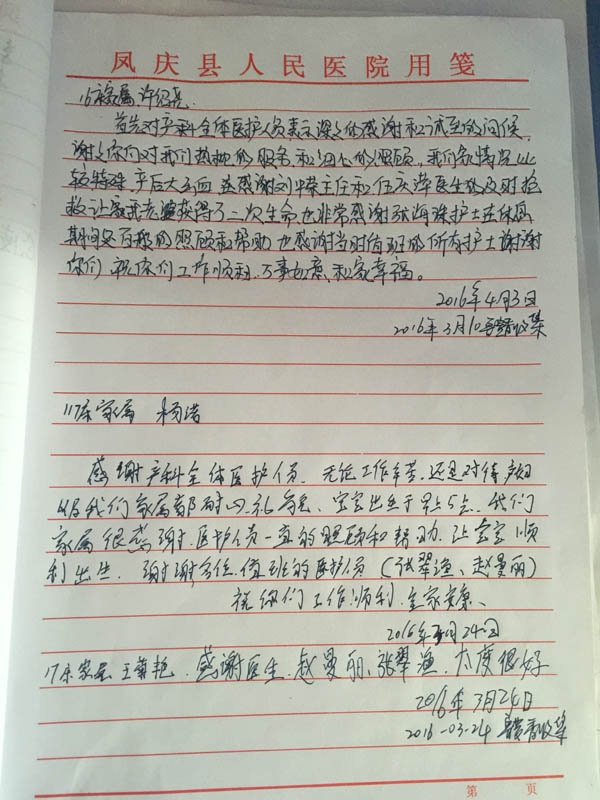 凤庆县人民医院用笺
16床家属 许绍亮
首先对产科全体医护人员表示深深的感谢和诚至的问候,
谢谢你们对我们热忱的服务和细心的照顾,我们的情况比
较特殊,产后大出血,在感谢刘 荣主任和伍庆萍医生的及时抢
救让 获得了二次生命也非常感谢张海珠护士在休息
期间 的照顾和帮助,也感谢当时值班的所有护士谢谢
你们,祝你们工作顺利,万事如意,和家幸福。
2016年4月3日
2016年3月10 收集
11床家属 杨浩
感谢产科全体医护人员,无论工作辛苦,还是对待产妇
以及我们家属都耐心,礼貌, 宝宝出生于早上5点,我们
家属很感谢,医护人员一直的照顾和帮助,让宝宝顺
利出生,谢谢各位值班的医护人员(张翠渔、赵曼丽)
祝你们工作顺利,全家安康、
2016年3月24日
17床家属 王菊艳,感谢医生,赵曼丽,张翠渔,太度很好
2016年3月24日
2016-03-24 收集
第 页